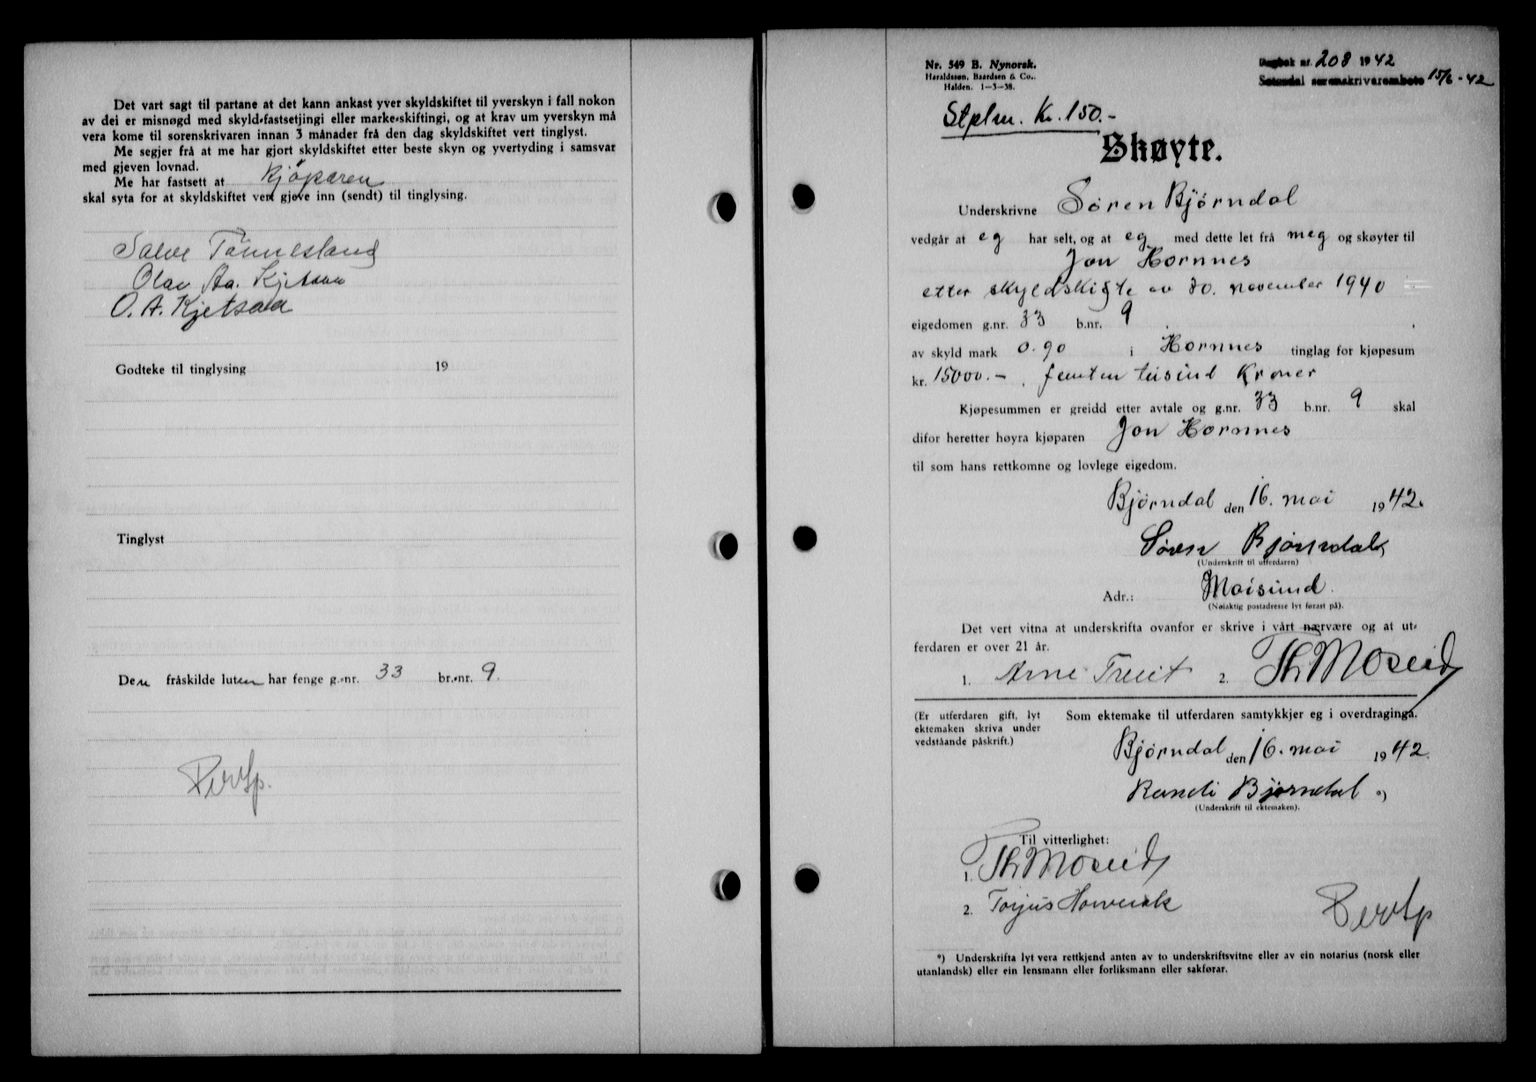 Det vart sagt til partane at det kann ankast yver skyldskiftet til yverskyn i fall nokon
av dei er misnøgd med skyld-fastsetjingi eller marke-skiftingi, og at krav um yverskyn må
vera kome til sorenskrivaren innan 3 månader frå den dag skyldskiftet vert tinglyst.
Me segjer frå at me har gjort skyldskiftet etter beste skyn og yvertyding i samsvar
med gjeven lovnad.
Me har fastsett at kjöparen
skal syta for at skyldskiftet vert gjeve inn (sendt) til tinglysing.
Salve Tönnesland
Olav Aa. Kjetsaa
O. A. Kjetsaa
Godteke til tinglysing 19
Tinglyst
Den fråskilde luten har fenge g.-nr. 33 br.-nr. 9.
Nr. 549 B. Nynorsk.
Haraldssen, Baardsen & Co..
Halden. 1—3—38.
Dagbok nr. 208 1942
Setesdal sorenskrivarembete 15/6-42
Stplm. Kr. 150.-
Skøyte.
Underskrivne Søren Bjørndal
vedgår at eg har selt, og at eg med dette let frå meg og skøyter til
Jon Hornnes
etter skyldskifte av 30. november 1940
eigedomen g.nr. 33 b.nr. 9
av skyld mark 0.90 i Hornnes tinglag for kjøpesum
kr. 15000.- , femten tusind Kroner
Kjøpesummen er greidd etter avtale og g.nr. 33 b.nr. 9 skal
difor heretter høyra kjøparen Jon Hornnes
til som hans rettkomne og lovlege eigedom.
Bjørndal den 16. mai 1942.
Søren Bjørndal
(Underskrift til utferdaren)
Adr.: Moisund.
(Nøiaktig postadresse lyt førast på).
Det vert vitna at underskrifta ovanfor er skrive i vårt nærvære og at ut-
ferdaren er over 21 år.
1. Arne Treit 2. Th Moseid
(Er utferdaren gift, lyt
ektemaken skriva under
vedståande påskrift.)
Som ektemake til utferdaren samtykkjer eg i overdraginga.
Bjørndal den 16. mai 1942.
Randi Bjørndal *)
(Underskrift til ektemaken).
Til vitterlighet:
1. Th Moseid
2. Torjus
*) Underskrifta lyt vera rettkjend anten av to underskriftsvitne eller av ein notarius (norsk eller
utanlandsk) eller ein lensmann eller forliksmann eller sakførar.